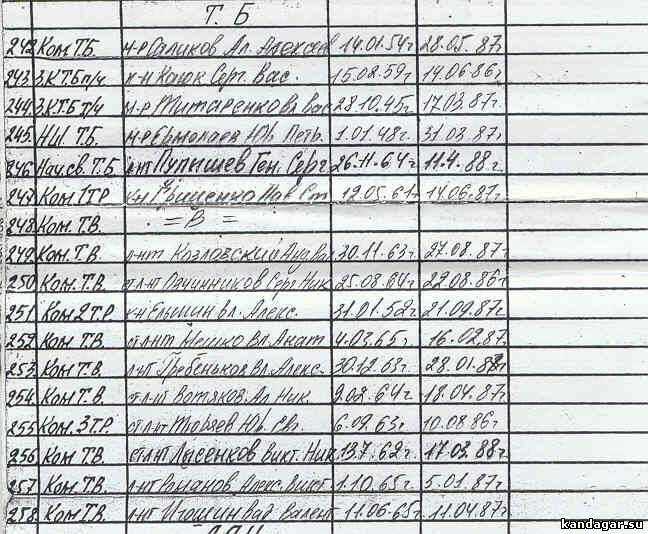 Т. Б
242 Ком Т.Б. м-р Саликов Ал. Алексеев 14.01.54г 28.05.87г
243 З.К Т.Б п/ч к-н Каюк Серг. Вас. 15.08.59г 14.06.86г
244 З.К.Т.Б П/ч м-р Титаренко Вл Вас 28.10.45г 17.03.87г
245. НШ Т.Б. м-р Ермолаев Юр. Петр. 1.01.48г. 31.03.87г.
246 Нач св. Т.Б Пупышев Ген. Серг. 26.11.64г 11.4.88г.
247 Ком 1 ТР к-н Пав. Ст. 12.05.61г 14.06.87г.
248. Ком. Т.В. = В =
249 Ком. Т.В. л-нт Козловский 30.11.63г 27.08.87г
250 Ком. Т.В. ст л-нт Овчинников Серг Ник 25.08.64г 22.08.86г
251 Ком 2 Т.Р. к-н Вл. Алекс. 31.01.52г 21.09.87г.
252 Ком ТВ. ст л-нт Мешко Вл. Анат 4.03.65г. 16.02.87г.
253. Ком Т.В. л-нт Гребеньков Вл. Алекс. 30.12.63г. 28.01.88г
254 Ком Т.В. ст л-нт Вотяков Ал Ник. 2.02.64г 18.04.87г
255 Ком. 3 Т.Р. ст л-нт Юр. 6.09.63г. 10.08.86г
256 Ком Т.В. ст л-нт Лысенков Викт. Ник 13.7.62г. 17.03.88г.
257. Ком Т.В. л-нт Романов Алекс. Викт 1.10.65г 5.01.87г
258. Ком ТВ. л-нт Игошин Вад Валент 11.06.65г 11.04.87г
kandagar.su